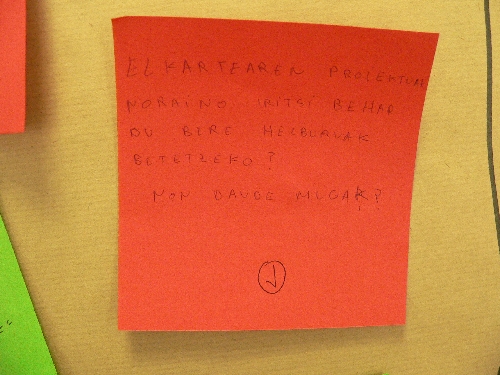 ELKARTEAREN PROIEKTUM
NORAINO IRITSI BEHAR
DU BERE HELBURUAK
BETETZEKO?
NON DAUDE MUGAK?